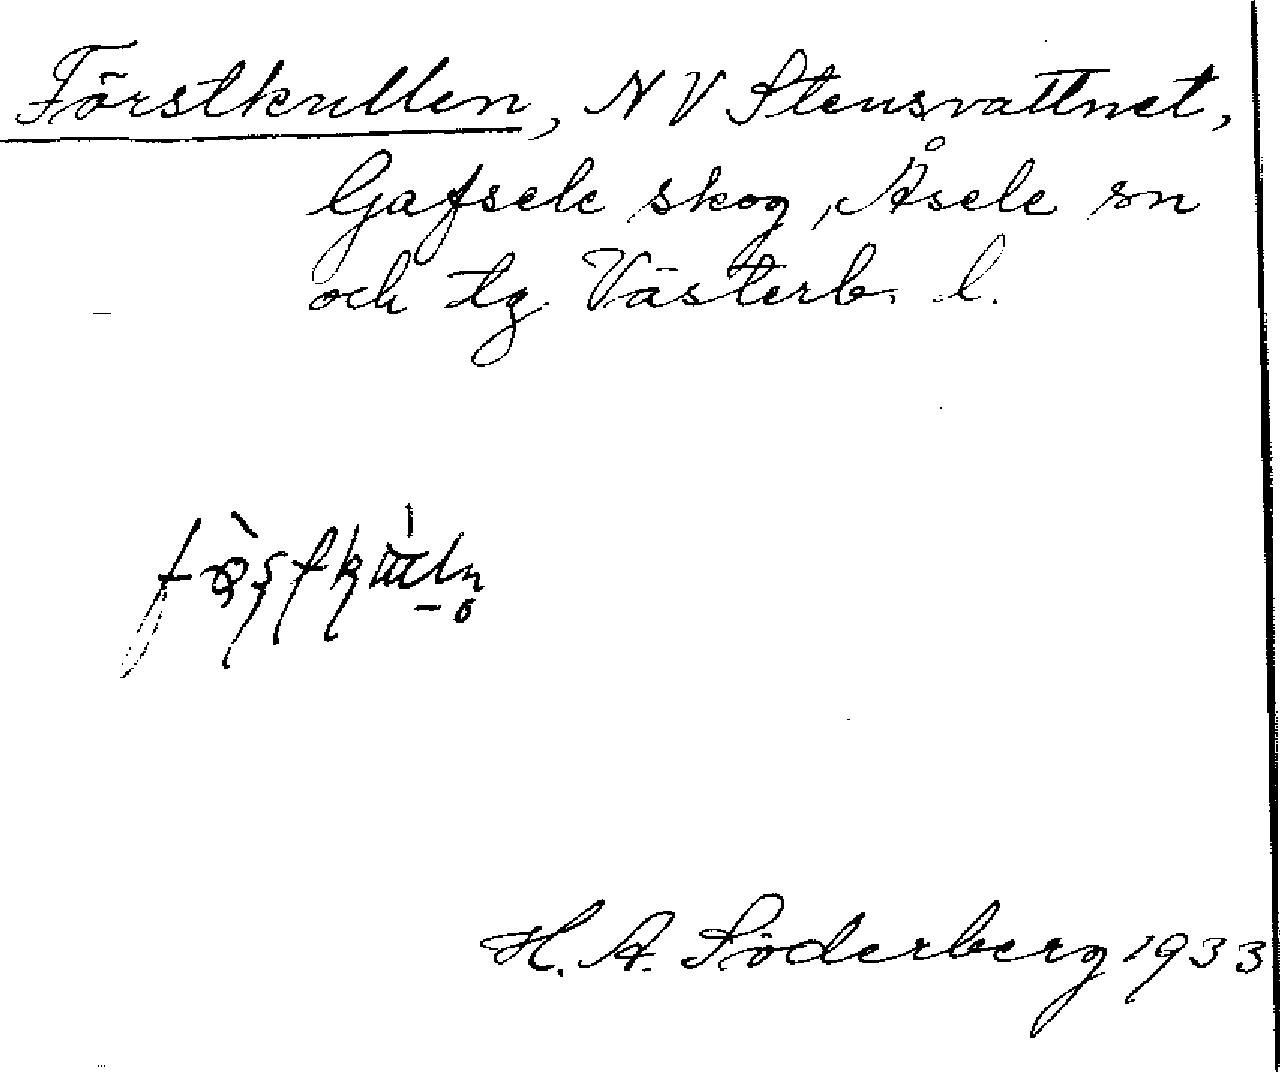 Förstkullen, N V Stensvattnet,
Gafsele skog, Åsele sn
och tg Västerb. l.
H. A. Söderberg 1933